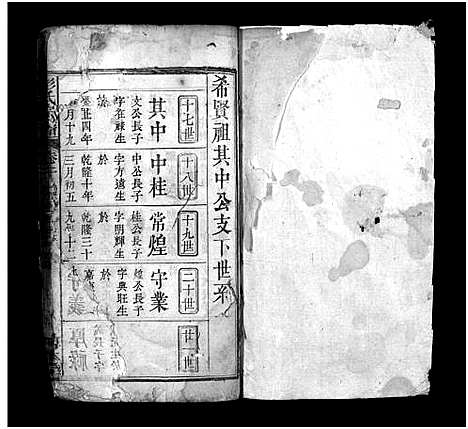 希賢祖其中公支下世系
十七世
其中
文公長子
字在祿生
於
雍正四年
月十九
十八世
中桂
中公長子
字方遠生
於
乾隆十年
三月初五
十九世
常煌
桂公長子
字明輝生
於
乾隆三十
二十世
守業
煌公長子
字典旺生
於
嘉
守義
廿一世
厚祿
長子字